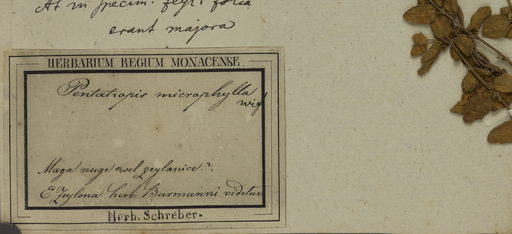 At in specim. folia
erant majora
HERBARIUM REGIUM MONACENSE.
Pentatropis microphylla
Wigt
Maga nuge wel zeylanice.
E Zeylona herb. Burmanni videtur
Herb. Schreber.